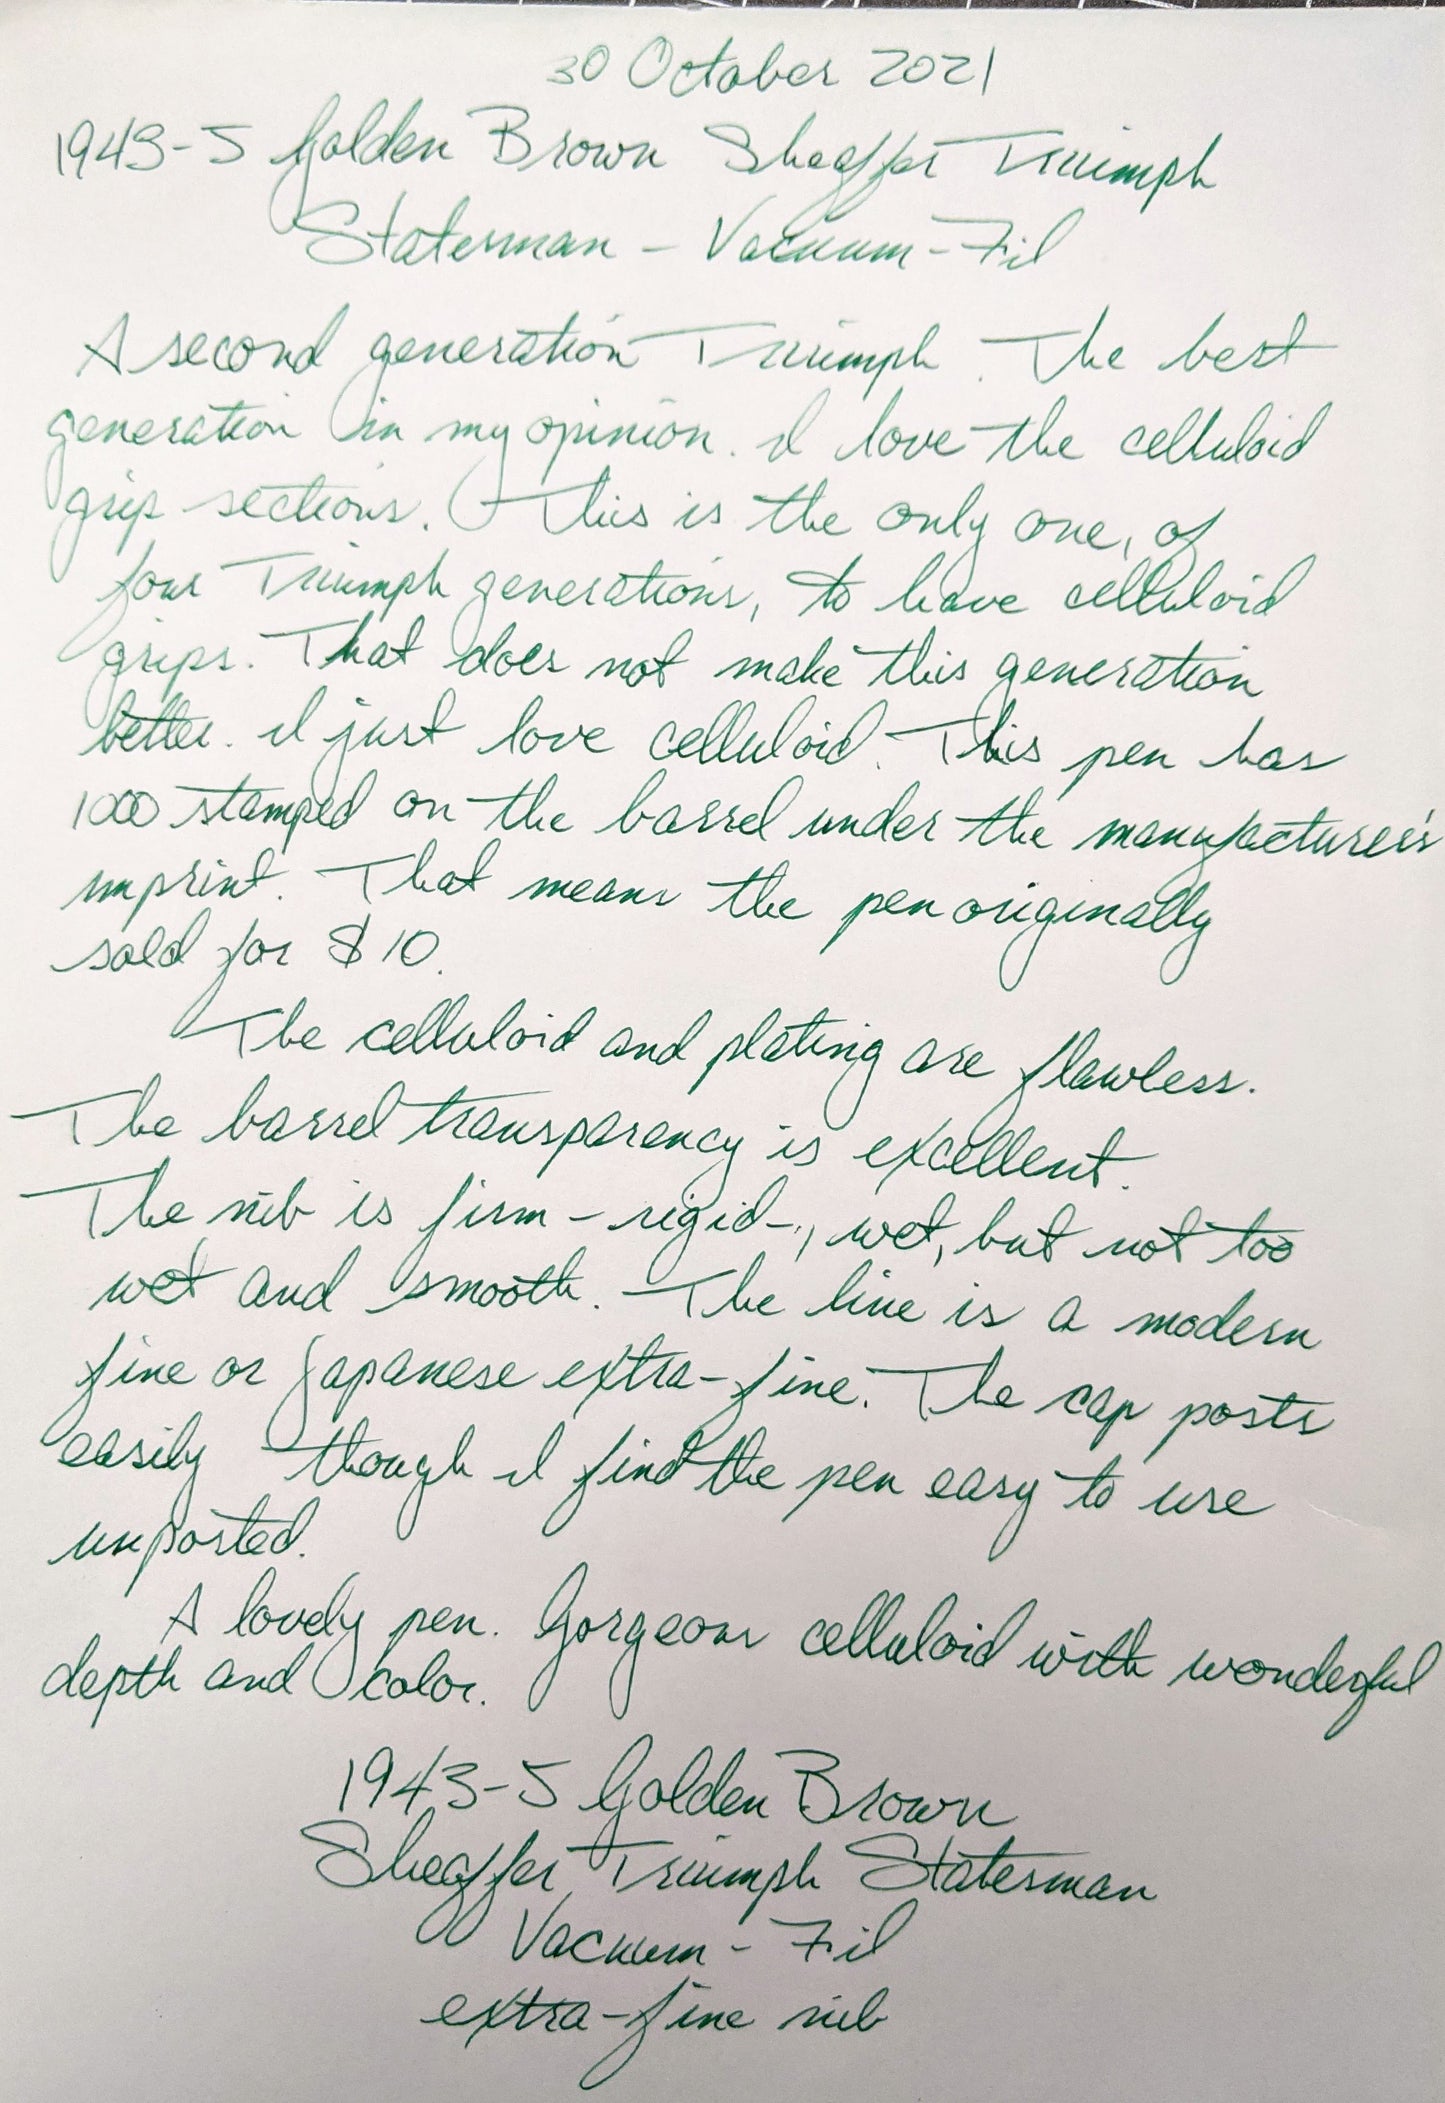 30 October 2021
1943-5 Golden Brown Sheaffer Triumph
Statesman - Vacuum-Fil
A second generation Triumph. The best
generation in my opinion. I love the celluloid
grip sections. This is the only one, of
four Triumph generations, to have celluloid
grips. That does not make this generation
better. I just love celluloid. This pen has
1000 stamped on the barrel under the manufacturer's
imprint. That means the pen originally
sold for $10.
The celluloid and plating are flawless.
The barrel transparency is excellent.
The nib is firm - rigid-, wet, but not too
wet and smooth. The line is a modern
fine or Japanese extra-fine. The cap posts
easily though I find the pen easy to use
unposted.
A lovely pen. Gorgeous celluloid with wonderful
depth and color.
1943-5 Golden Brown
Sheaffer Triumph Statesman
Vacuum-Fil
extra-fine nib